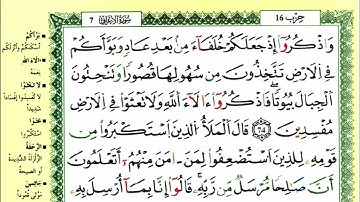 حزب 16
سورة الأعراف 7
وَاذْكُرُوٓا إِذْ جَعَلَكُمْ خُلَفَآءَ مِنۢ بَعْدِ عَادٍ وَبَوَّأَكُمْ
فِى الَارْضِ تَتَّخِذُونَ مِن سُهُولِهَا قُصُورًا وَتَنْحِتُونَ
الْجِبَالَ بُيُوتًا فَاذْكُرُوٓا ءَالَآءَ اللَّهِ وَلَا تَعْثَوْا فِى الَارْضِ
مُفْسِدِينَ ۝ قَالَ الْمَلَأُ الذِينَ اَسْتَكْبَرُوا مِن
قَوْمِهِ لِلذِينَ اَسْتُضْعِفُوا لِمَنَ ـ امَنَ مِنْهُمُ أَتَعْلَمُونَ
أَنَّ صَلِحًا مُّرْسَلٌ مِّن رَّبِّهِ قَالُوٓا إِنَّا بِمَآ أُرْسِلَ بِهِ
بَوَّأَكُمْ
أسكنكم وأنزلكم
ءالاء الله
نِعَمَه
لا تعثوا
لا تفسدوا إفسادًا
شديدًا
عتوا
استكبروا
الرجفة
الزلزلة الشديدة
أو الصيحة
جاثمين
موتى قعودًا